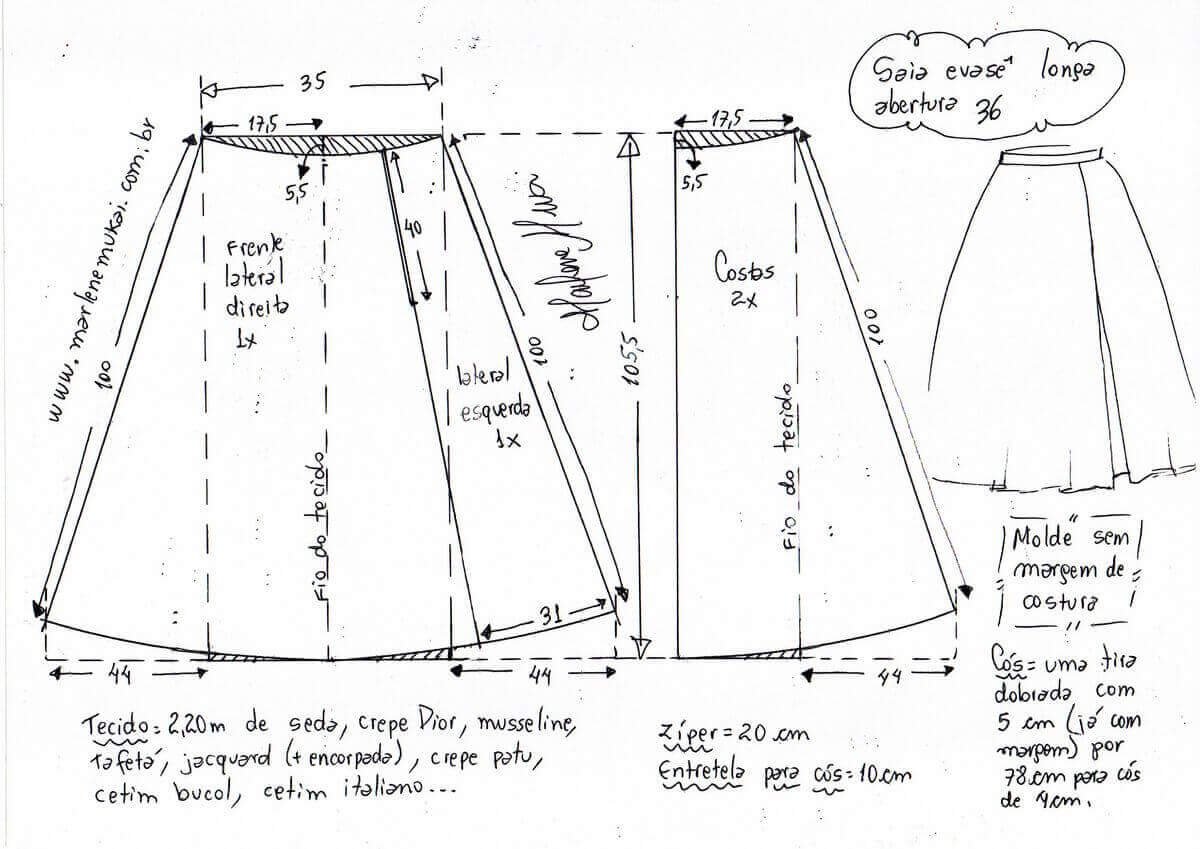 Saia evasê longa
abertura 36
35
17,5
5,5
40
100
www.marlenemukai.com.br
Frente
lateral
direita
1x
Fio do tecido
lateral
esquerda
1x
100
31
44
44
105,5
17,5
5,5
Costas
2x
Fio do tecido
100
44
Molde sem
margem de
costura
Cós = uma tira
dobrada com
5 cm (já com
margem) por
78 cm para cós
de 4 cm.
Tecido = 2,20m de seda, crepe Dior, musseline,
tafetá, jacquard (+ encorpada), crepe patu,
cetim bucol, cetim italiano...
Zíper = 20 cm
Entretela para cós = 10 cm